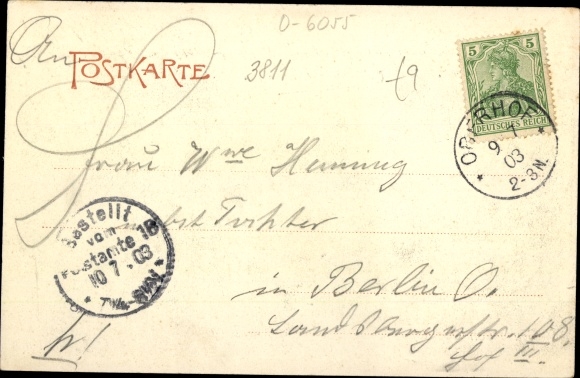 D-6055
An
POSTKARTE
3811
t9
5 5
DEUTSCHES REICH
OBERHOF
9 7
03
2-3N.
Frau Wwe Henning
nebst Tochter
Bestellt
vom
Postamte 18
10 7. 03
in Berlin O.
Landsbergerstr. 108.
Hof III.